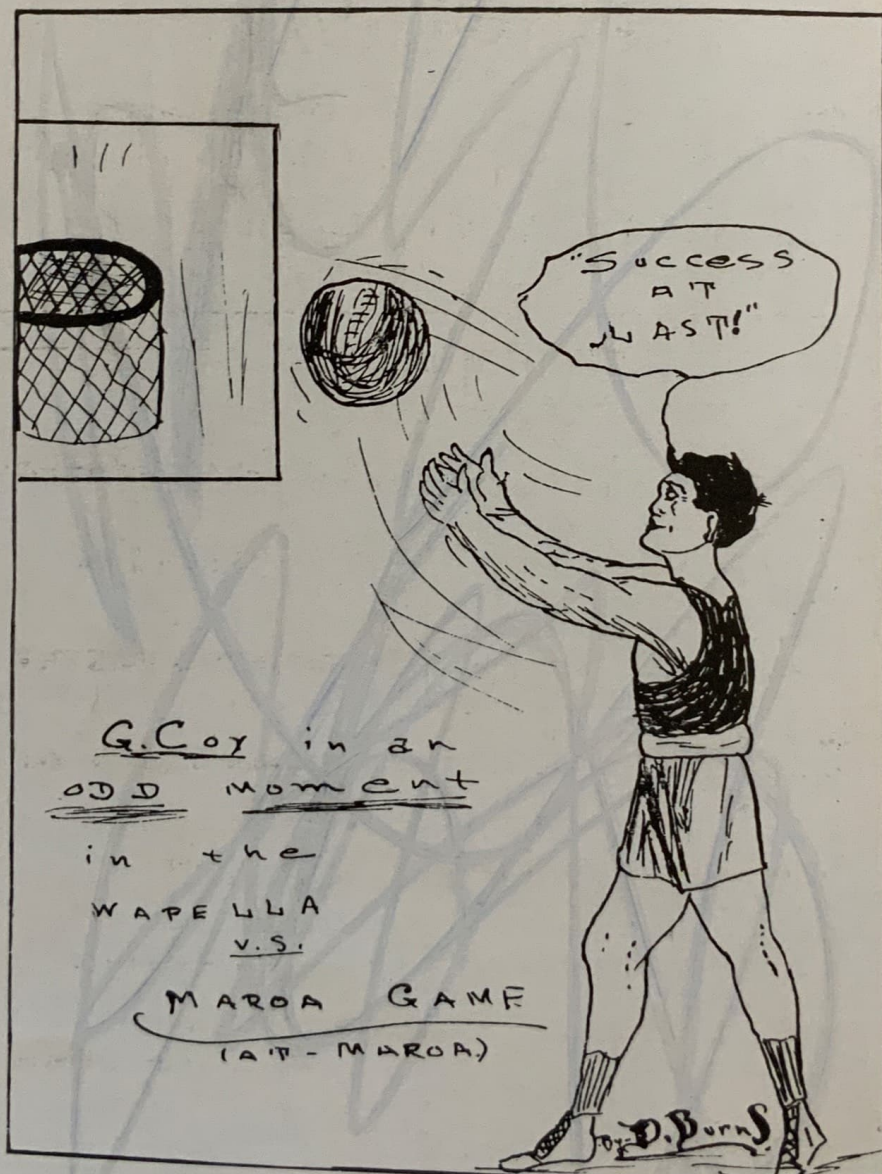 "Success
AT
LAST!"
G. Coy in an
ODD moment
in the
WAPELLA
v.s.
MAROA GAME
(AT - MAROA)
By - D. Burns